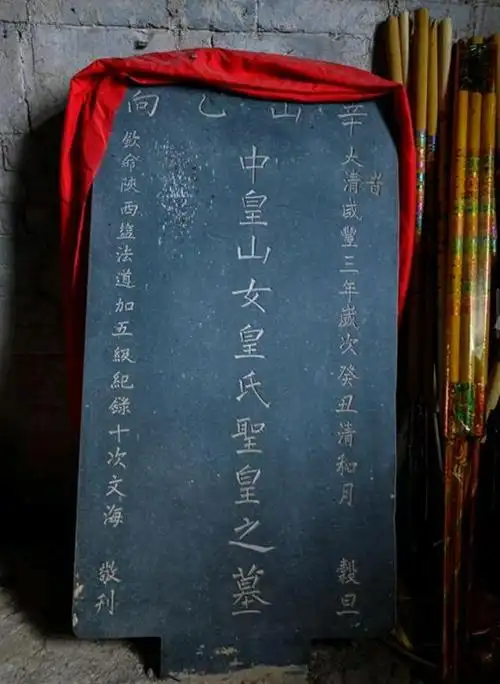 辛山乙向
旹大清咸豐三年歲次癸丑清和月 穀旦
中皇山女皇氏聖皇之墓
欽命陝西鹽法道加五級紀錄十次文海 敬刊